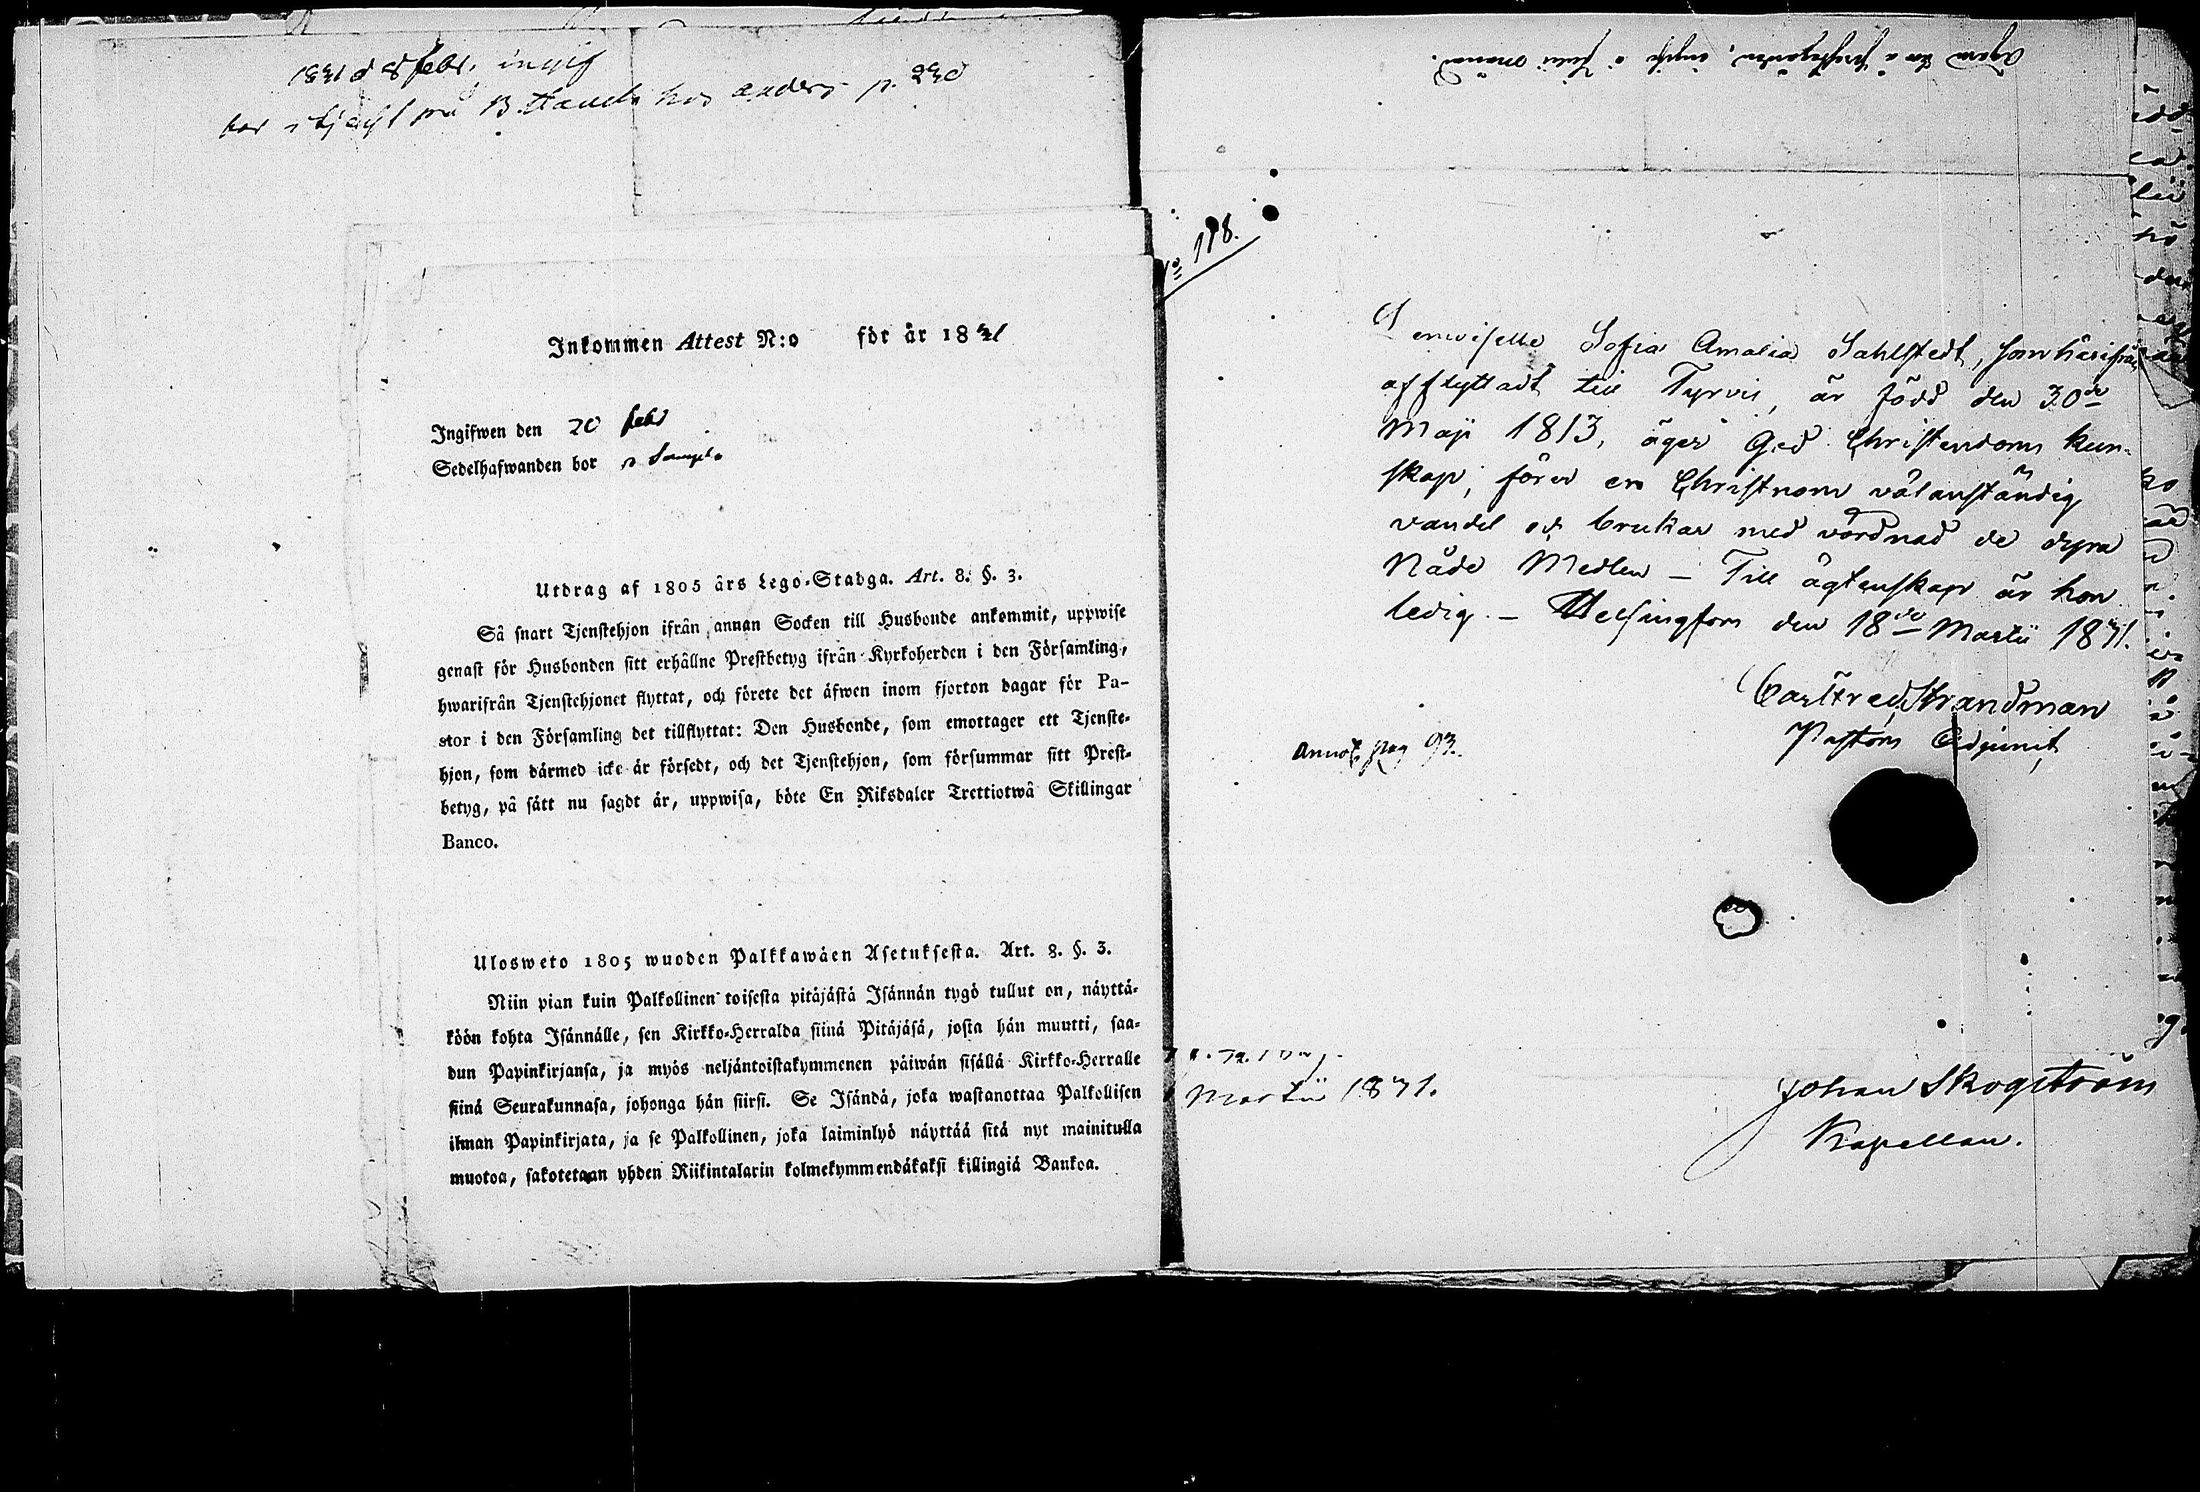 1841 d 8 febr. ingif
bor i tjenst på B. hos Anders p. 240
Inkommen Attest N:o för år 1841
Ingifwen den 20 febr
Sedelhafwanden bor
Utdrag af 1805 års Lego-Stadga. Art. 8. §. 3.
Så snart Tjenstehjon ifrån annan Socken till Husbonde ankommit, uppwise
genast för Husbonden sitt erhållne Prestbetyg ifrån Kyrkoherden i den Församling,
hwarifrån Tjenstehjonet flyttat, och förete det äfwen inom fjorton dagar för Pa-
stor i den Församling det tillflyttat: Den Husbonde, som emottager ett Tjenste-
hjon, som därmed icke är försedt, och det Tjenstehjon, som försummar sitt Prest-
betyg, på sätt nu sagdt är, uppwisa, böte En Riksdaler Trettiotwå Skillingar
Banco.
Ulosweto 1805 wuoden Palkkawäen Asetuksesta. Art. 8. §. 3.
Niin pian kuin Palkollinen toisesta pitäjästä Isännän tygö tullut on, näyttä-
köön kohta Isännälle, sen Kirkko-Herralda siinä Pitäjäsä, josta hän muutti, saa-
dun Papinkirjansa, ja myös neljäntoistakymmenen päiwän sisällä Kirkko-Herralle
siinä Seurakunnasa, johonga hän siirsi. Se Isändä, joka wastanottaa Palkollisen
ilman Papinkirjata, ja se Palkollinen, joka laiminlyö näyttää sitä nyt mainitulla
muotoa, sakotetaan yhden Riikintalarin kolmekymmendäkaksi killingiä Bankoa.
No 118.
Demoiselle Sofia Amalia Sahlstedt, som härifrån
afflyttadt till Tyrvis, är född den 30de
Maji 1813, äger God Christendoms kun-
skap, förer en Christnom välanständig
vandel och brukar med vördnad de dyra
Nåde Medlen - Till ägtenskap är hon
ledig. - Helsingfors den 18de Martii 1841.
Carl Fred. Strandman
Pastors Adjunct
Annot. pag 93.
Martii 1841.
Johan Skogström
Kapellan.